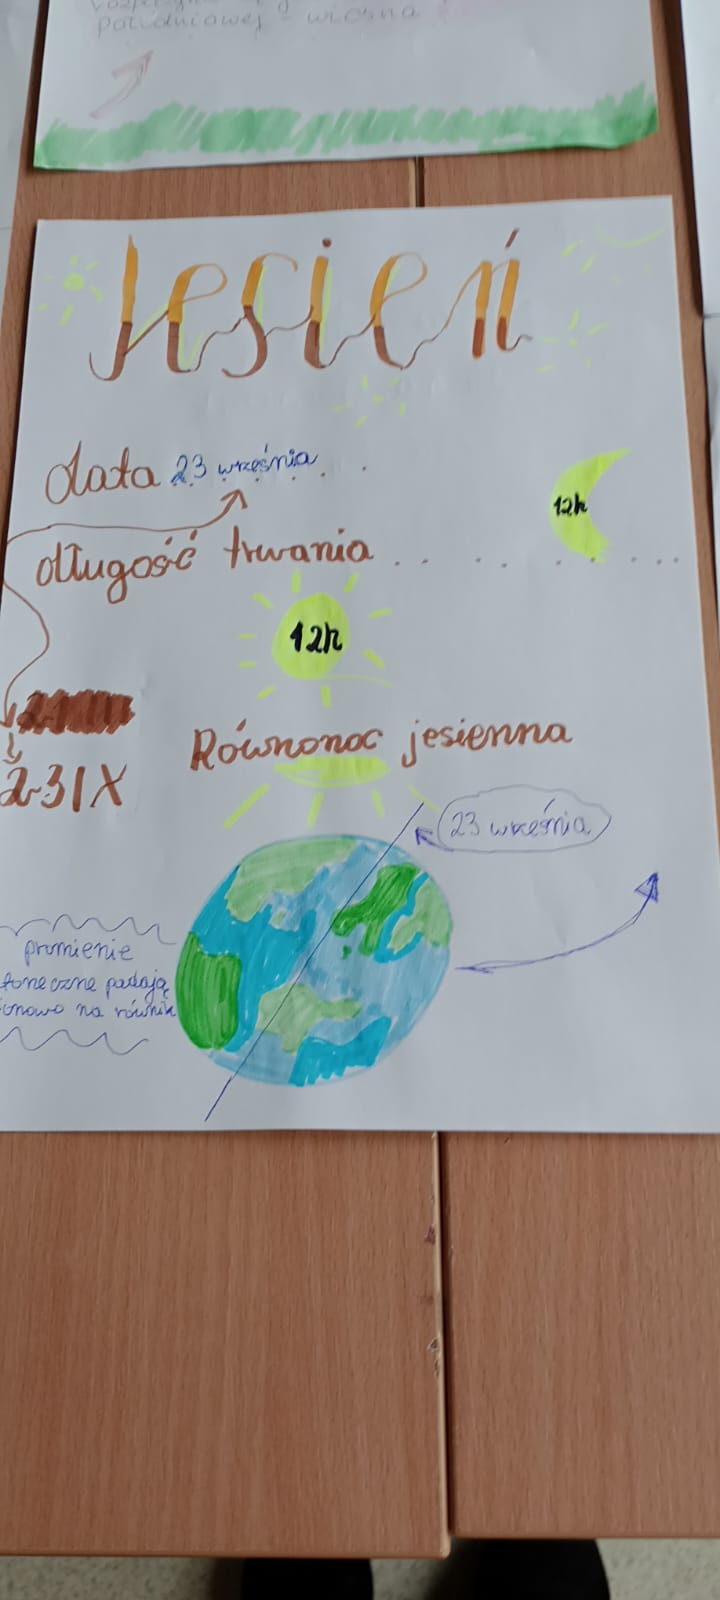 południowej - wiosna
Jesień
data 23 września . .
12h
długość trwania . . . . . . .
12h
Równonoc jesienna
23 IX
23 września
promienie
słoneczne padają
na równik